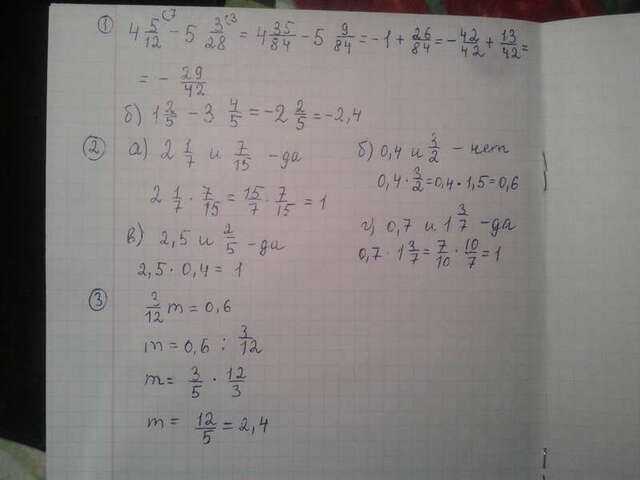 1) 4 5/12 (7 - 5 3/28 (3 = 4 35/84 - 5 9/84 = -1 + 26/84 = - 42/42 + 13/42 =
= - 29/42
б) 1 2/5 - 3 4/5 = -2 2/5 = -2,4
2 а) 2 1/7 и 7/15 - да
2 1/7 · 7/15 = 15/7 · 7/15 = 1
б) 0,4 и 3/2 - нет
0,4 · 3/2 = 0,4 · 1,5 = 0,6
в) 2,5 и 2/5 - да
2,5 · 0,4 = 1
г) 0,7 и 1 3/7 - да
0,7 · 1 3/7 = 7/10 · 10/7 = 1
3 3/12 m = 0,6
m = 0,6 : 3/12
m = 3/5 · 12/3
m = 12/5 = 2,4